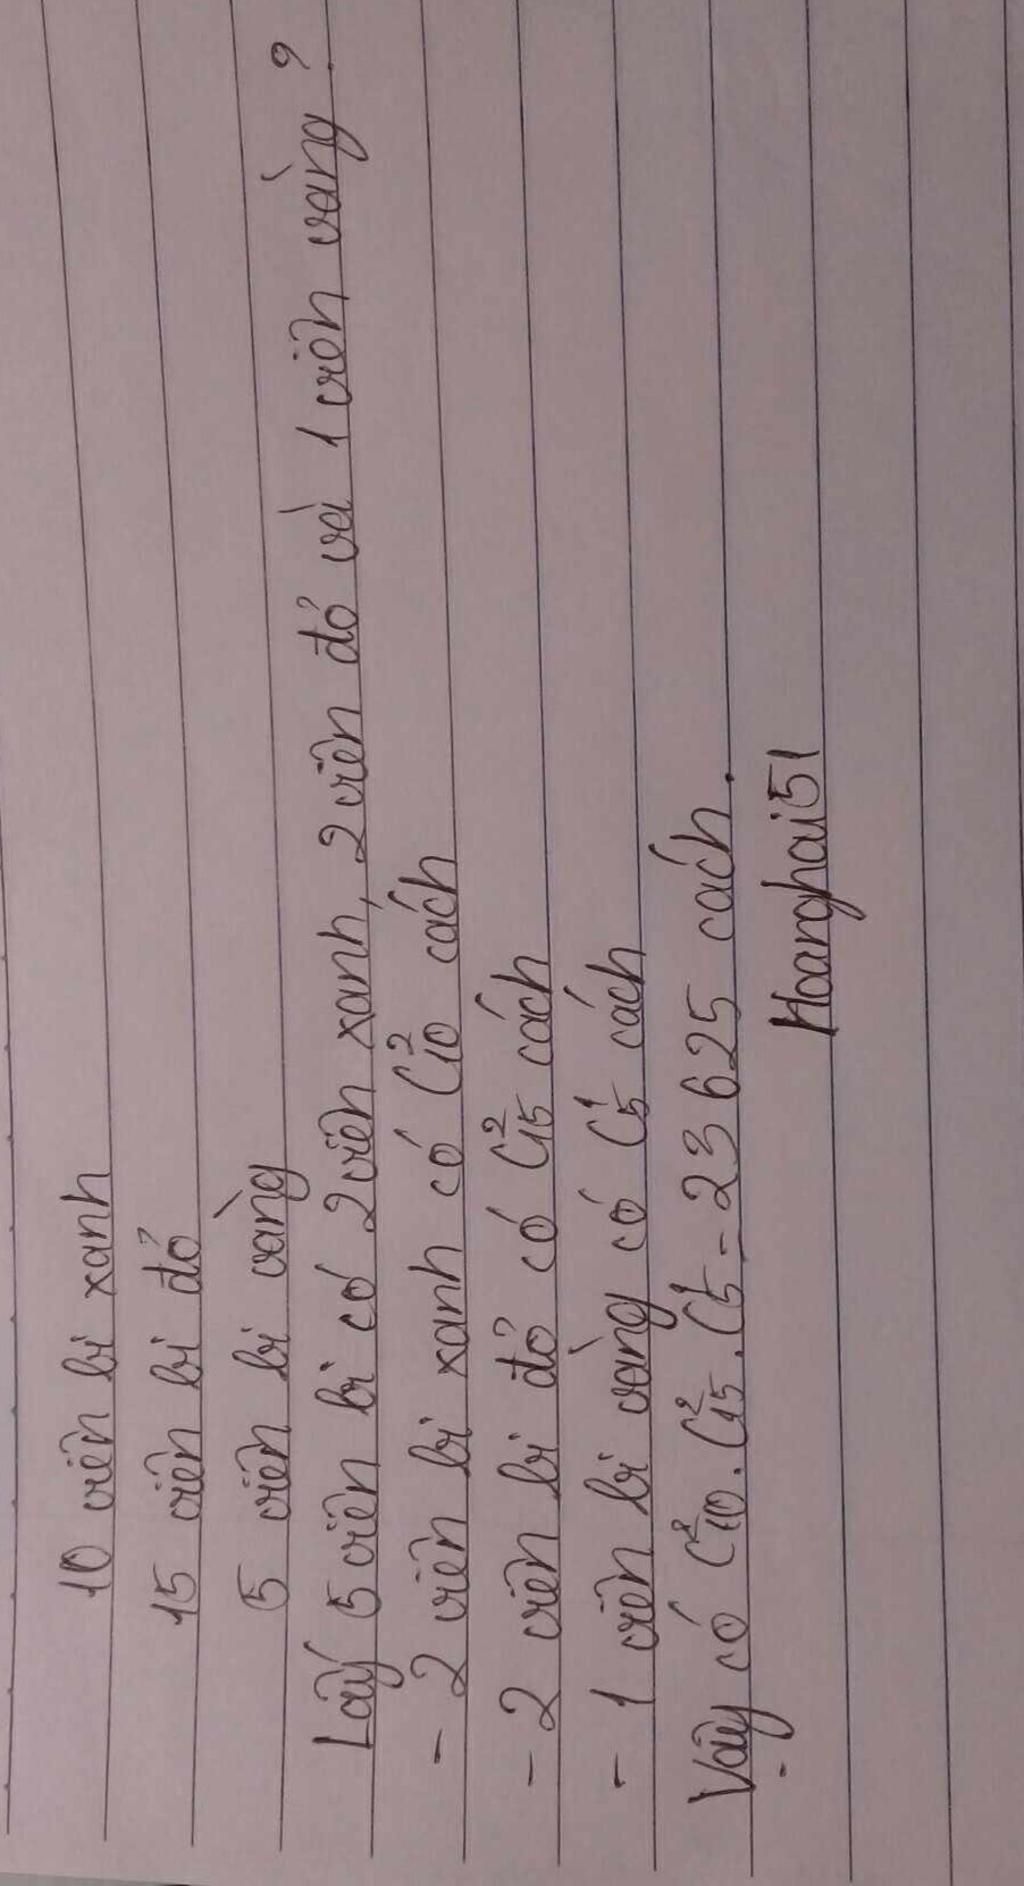 10 viên bi xanh
15 viên bi đỏ
5 viên bi vàng
Lấy 5 viên bi có 2 viên xanh, 2 viên đỏ và 1 viên vàng?
- 2 viên bi xanh có C²₁₀ cách
- 2 viên bi đỏ có C²₁₅ cách
- 1 viên bi vàng có C¹₅ cách
Vậy có C²₁₀.C²₁₅.C¹₅ = 23625 cách.
Hoanghai51